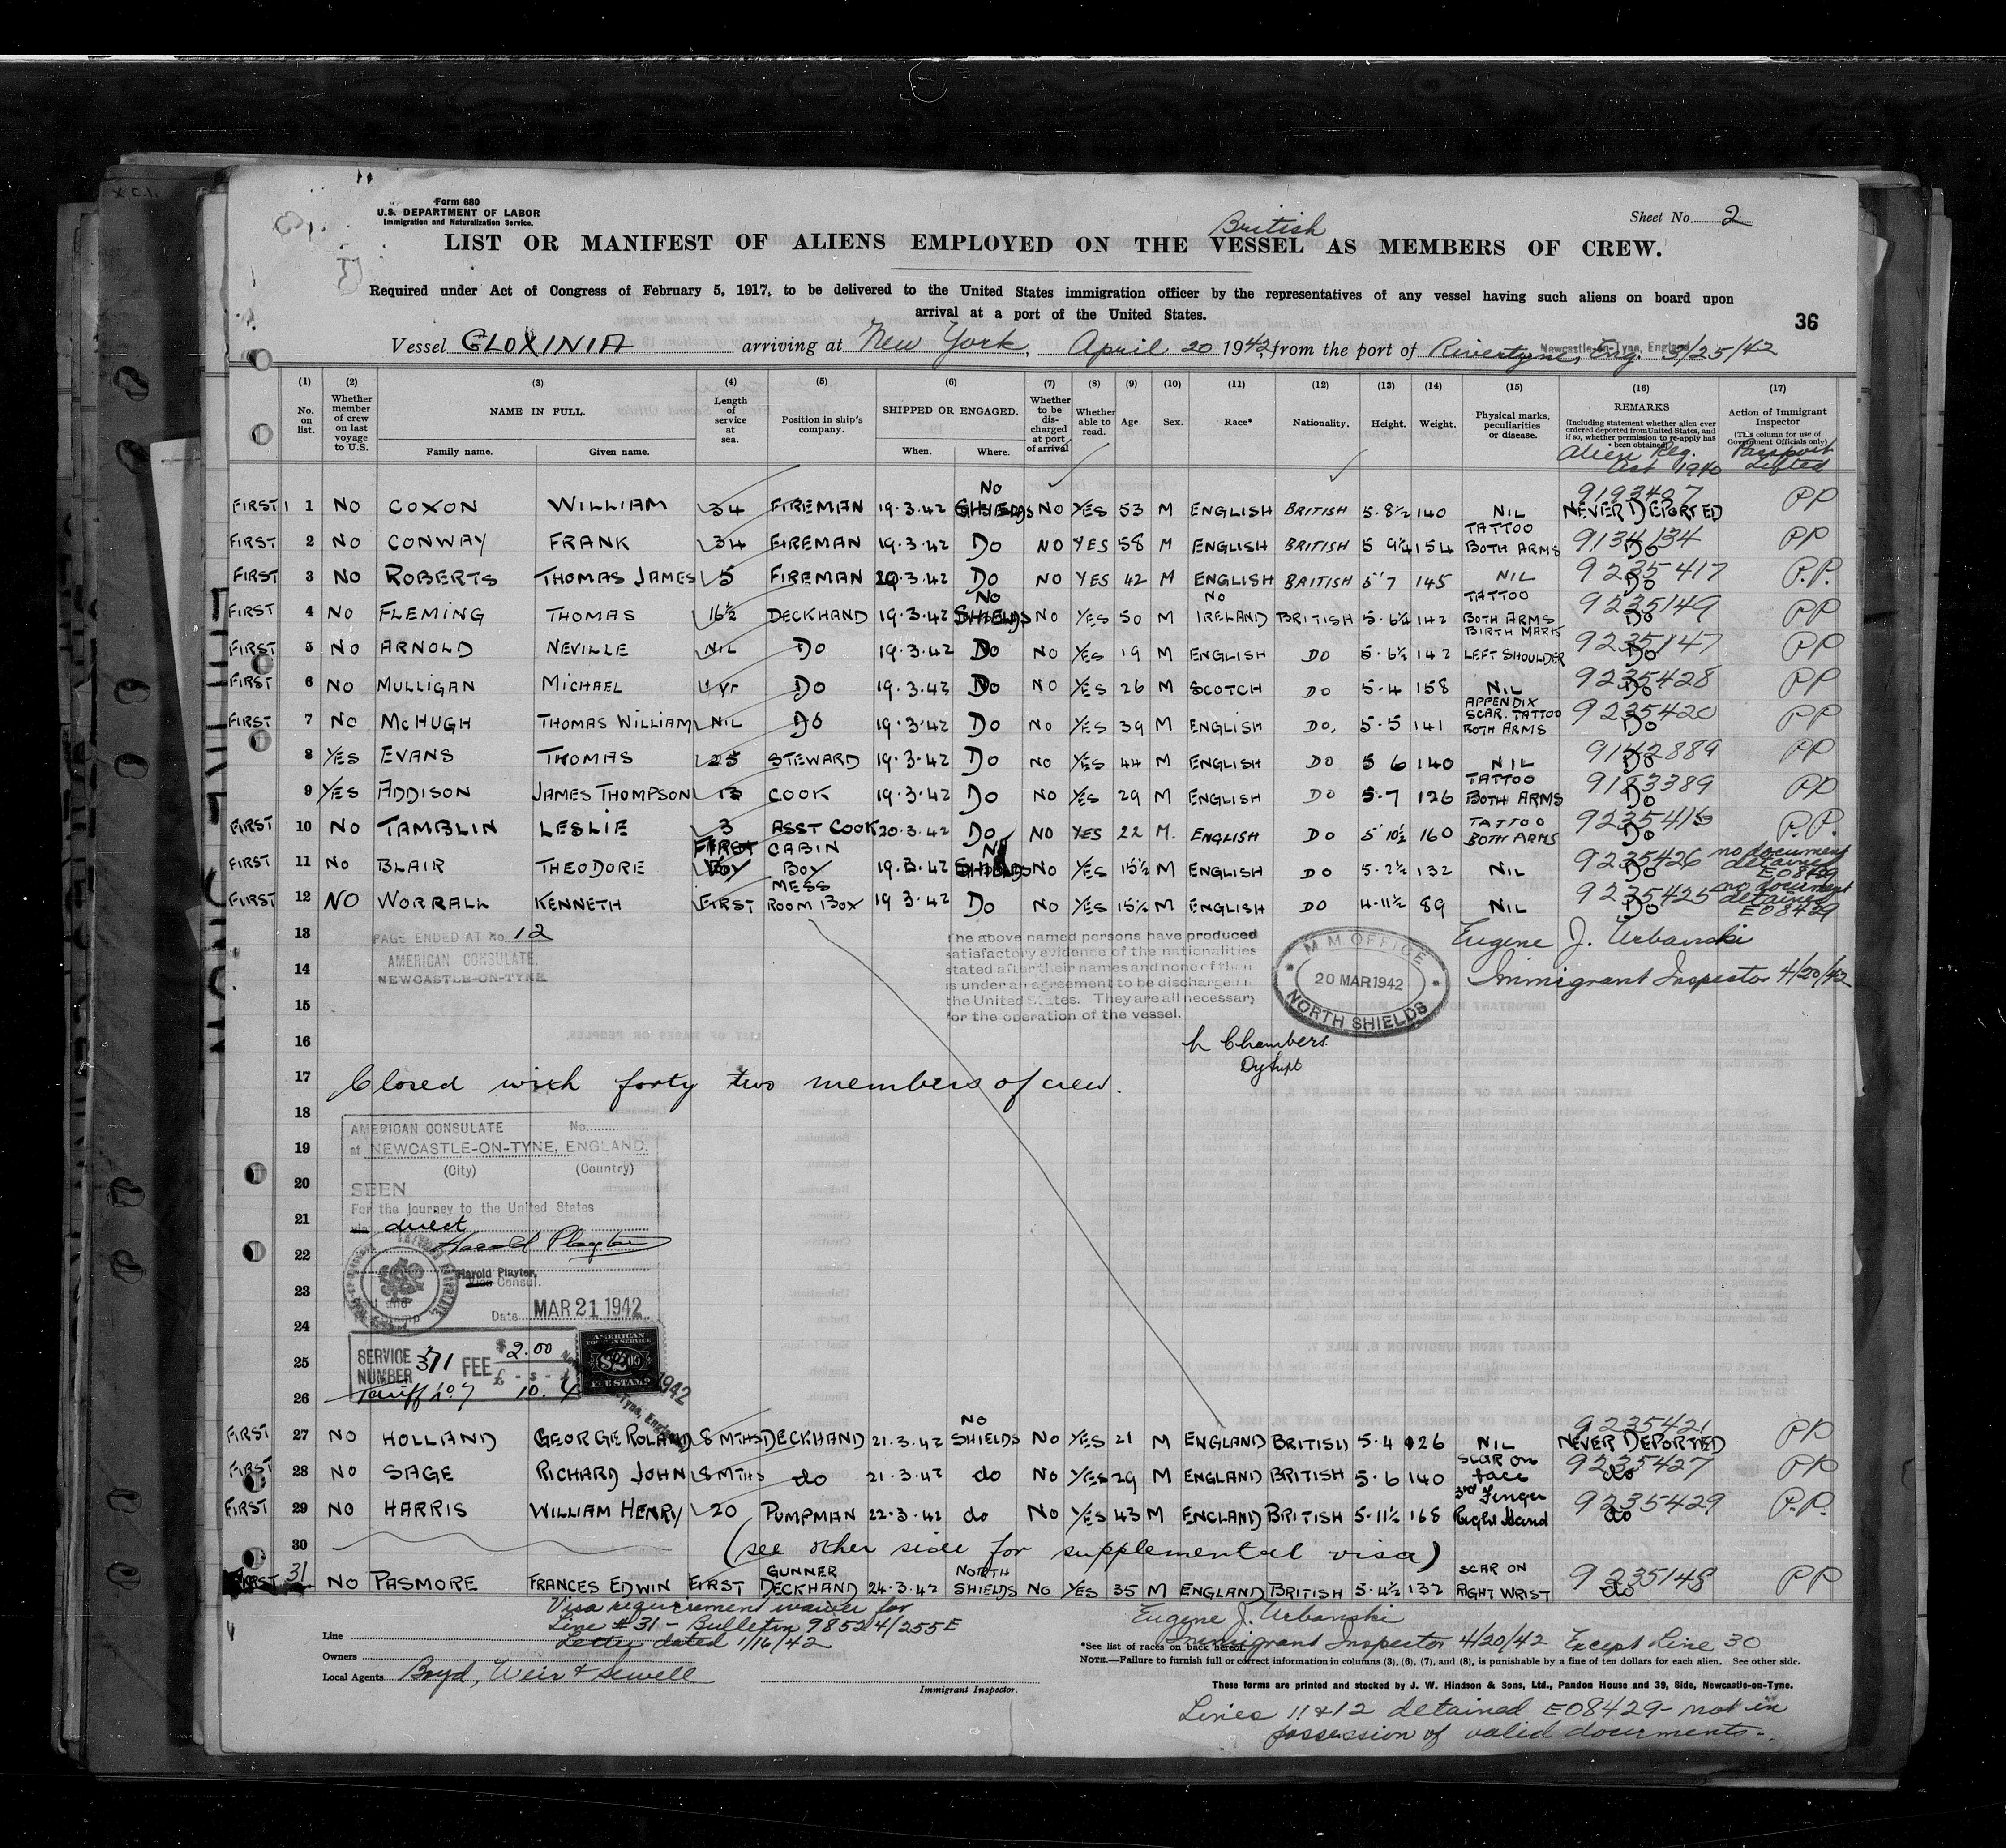 Form 680
U.S. DEPARTMENT OF LABOR
Immigration and Naturalization Service.
Sheet No. 2
British
LIST OR MANIFEST OF ALIENS EMPLOYED ON THE VESSEL AS MEMBERS OF CREW.
Required under Act of Congress of February 5, 1917, to be delivered to the United States immigration officer by the representatives of any vessel having such aliens on board upon
arrival at a port of the United States.
36
Vessel GLOXINIA arriving at New York, April 20 1942, from the port of Rivertyne, Eng. Newcastle-on-Tyne, England 3/25/42
(1) (2) (3) (4) (5) (6) (7) (8) (9) (10) (11) (12) (13) (14) (15) (16) (17)
No. on list. Whether member of crew on last voyage to U.S. NAME IN FULL. Family name. Given name. Length of service at sea. Position in ship's company. SHIPPED OR ENGAGED. When. Where. Whether to be discharged at port of arrival Whether able to read. Age. Sex. Race* Nationality. Height. Weight. Physical marks, peculiarities or disease. REMARKS (Including statement whether alien ever ordered deported from United States, and if so, whether permission to re-apply has been obtained) Action of Immigrant Inspector (This column for use of Government Officials only)
Alien Reg. Act 1940 Passport Lifted
FIRST 1 NO COXON WILLIAM 34 FIREMAN 19.3.42 NO SHIELDS NO YES 53 M ENGLISH BRITISH 5.8½ 140 NIL 9193407 NEVER DEPORTED PP
FIRST 2 NO CONWAY FRANK 34 FIREMAN 19.3.42 DO NO YES 58 M ENGLISH BRITISH 5 9¼ 154 TATTOO BOTH ARMS 9134134 DO PP
FIRST 3 NO ROBERTS THOMAS JAMES 5 FIREMAN 20.3.42 DO NO YES 42 M ENGLISH BRITISH 5'7 145 NIL 9235417 DO P.P.
FIRST 4 NO FLEMING THOMAS 16½ DECKHAND 19.3.42 NO SHIELDS NO YES 50 M NO IRELAND BRITISH 5.6½ 142 TATTOO BOTH ARMS 9235149 DO PP
FIRST 5 NO ARNOLD NEVILLE NIL DO 19.3.42 DO NO YES 19 M ENGLISH DO 5.6½ 142 BIRTH MARK LEFT SHOULDER 9235147 DO PP
FIRST 6 NO MULLIGAN MICHAEL 4 yr DO 19.3.42 DO NO YES 26 M SCOTCH DO 5.4 158 NIL 9235428 DO PP
FIRST 7 NO McHUGH THOMAS WILLIAM NIL DO 19.3.42 DO NO YES 39 M ENGLISH DO. 5.5 141 APPENDIX SCAR. TATTOO BOTH ARMS 9235420 DO PP
8 YES EVANS THOMAS 25 STEWARD 19.3.42 DO NO YES 44 M ENGLISH DO 5 6 140 NIL 9142889 DO PP
9 YES ADDISON JAMES THOMPSON 13 COOK 19.3.42 DO NO YES 29 M ENGLISH DO 5.7 126 TATTOO BOTH ARMS 9183389 DO PP
FIRST 10 NO TAMBLIN LESLIE 3 ASST COOK 20.3.42 DO NO YES 22 M. ENGLISH DO 5'10½ 160 TATTOO BOTH ARMS DO P.P.
FIRST 11 NO BLAIR THEODORE FIRST CABIN BOY 19.3.42 NO SHIELDS NO YES 15½ M ENGLISH DO 5.2½ 132 NIL 9235426 DO no document detained E08429
FIRST 12 NO WORRALL KENNETH FIRST MESS ROOM BOY 19 3.42 DO NO YES 15½ M ENGLISH DO 4.11½ 89 NIL 9235425 DO no document detained E08429
13 PAGE ENDED AT No. 12
AMERICAN CONSULATE.
NEWCASTLE-ON-TYNE
14
15
The above named persons have produced
satisfactory evidence of the nationalities
stated after their names and none of them
is under an agreement to be discharged in
the United States. They are all necessary
for the operation of the vessel.
M M OFFICE
20 MAR 1942
NORTH SHIELDS
Eugene J. Urbanski
Immigrant Inspector 4/20/42
16
Chambers
Dy Supt
17 Closed with forty two members of crew.
18
AMERICAN CONSULATE No.
19 at NEWCASTLE-ON-TYNE, ENGLAND.
(City) (Country)
20 SEEN
For the journey to the United States
21 via direct
22 Harold Playter
Harold Playter,
Vice Consul.
23
Date MAR 21 1942
24
AMERICAN
FOREIGN SERVICE
$2.00
FEE STAMP
25 SERVICE NUMBER 371 FEE $2.00
£ - s -
26 Tariff No. 7 10.
1942
FIRST 27 NO HOLLAND GEORGE ROLAND 8 MTHS DECKHAND 21.3.42 NO SHIELDS NO YES 21 M ENGLAND BRITISH 5.4 126 NIL 9235421 NEVER DEPORTED PP
FIRST 28 NO SAGE RICHARD JOHN 8 MTHS do 21.3.42 do NO YES 29 M ENGLAND BRITISH 5.6 140 SCAR ON face 9235427 do PP
FIRST 29 NO HARRIS WILLIAM HENRY 20 PUMPMAN 22.3.42 do NO YES 43 M ENGLAND BRITISH 5.11½ 168 3rd Finger Right Hand 9235429 do P.P.
30 (see other side for supplemental visa)
FIRST 31 NO PASMORE FRANCES EDWIN FIRST GUNNER DECKHAND 24.3.42 NORTH SHIELDS NO YES 35 M ENGLAND BRITISH 5.4½ 132 SCAR ON RIGHT WRIST 9235148 do PP
Visa requirement waiver for
Line #31 - Bulletin 98524/255E
Letter dated 1/16/42
Eugene J. Urbanski
Immigrant Inspector 4/20/42 Except Line 30
Line
Owners
Local Agents Boyd, Weir & Sewell
Immigrant Inspector.
*See list of races on back hereof.
NOTE.—Failure to furnish full or correct information in columns (3), (6), (7), and (8), is punishable by a fine of ten dollars for each alien. See other side.
These forms are printed and stocked by J. W. Hindson & Sons, Ltd., Pandon House and 39, Side, Newcastle-on-Tyne.
Lines 11 & 12 detained E08429 - not in
possession of valid documents.